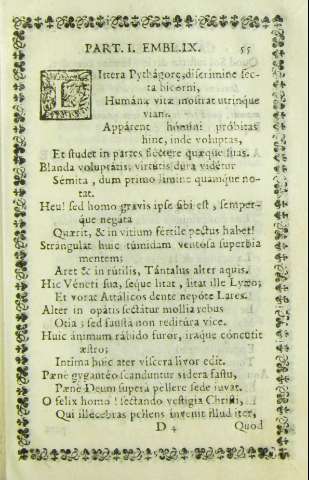 PART. I. EMBL. IX. 55
LIttera Pythágorę, discrimine sec-
ta bicorni,
Humánæ vitæ mostrat utrinque
viam.
Appárent hómini próbitas
hinc, inde voluptas,
Et studet in partes flectere quæque suas.
Blanda voluptátis, virtútis dura vidétur
Sémita, dum primo límine quamque no-
tat.
Heu! sed homo gravis ipse sibi est, semper-
que negáta
Quærit, & in vitium fértile pectus habet!
Strángulat huic túmidam ventosa supérbia
mentem;
Aret & in rútilis, Tántalus alter aquis.
Hic Véneri sua, seque litat, litat ille Lyæo;
Et vorat Attálicos dente nepóte Lares.
Alter in opátis sectátur móllia rebus
Otia; sed fausta non reditúra vice.
Huic ánimum rábido furor, iráque concutit
æstro;
Intima huic ater víscera livor edit.
Pæne gygantéo scanduntur sídera fastu,
Pæne Deum súpera péllere sede juvat.
O felix homo! sectando vestígia Christi,
Qui illécebras pellens invenit illud iter,
D 4 Quod